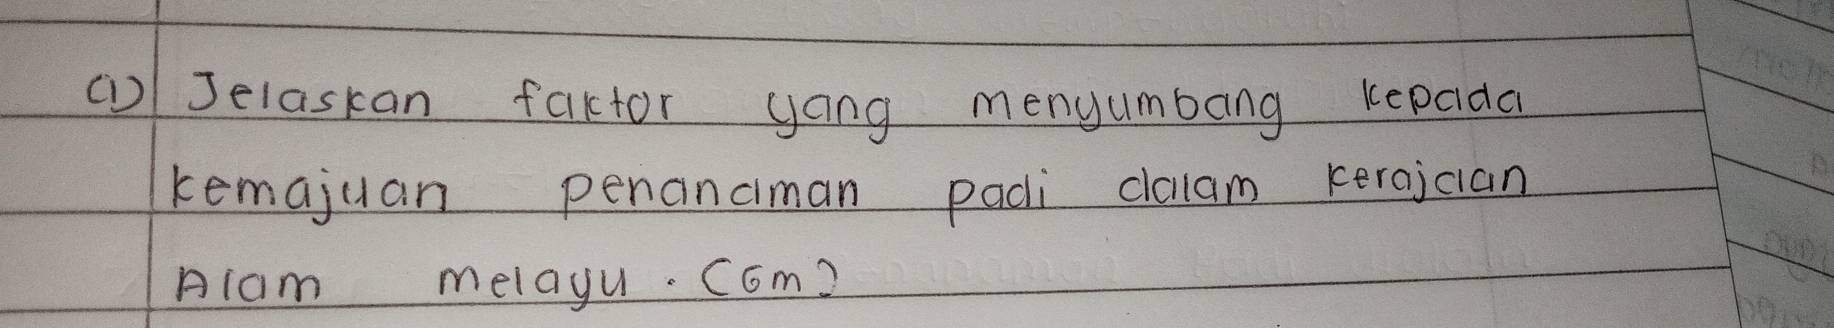 a) Jelaskan faktor yang menyumbang kepada
kemajuan penanaman padi dalam kerajaan
Alam melayu. (6m)